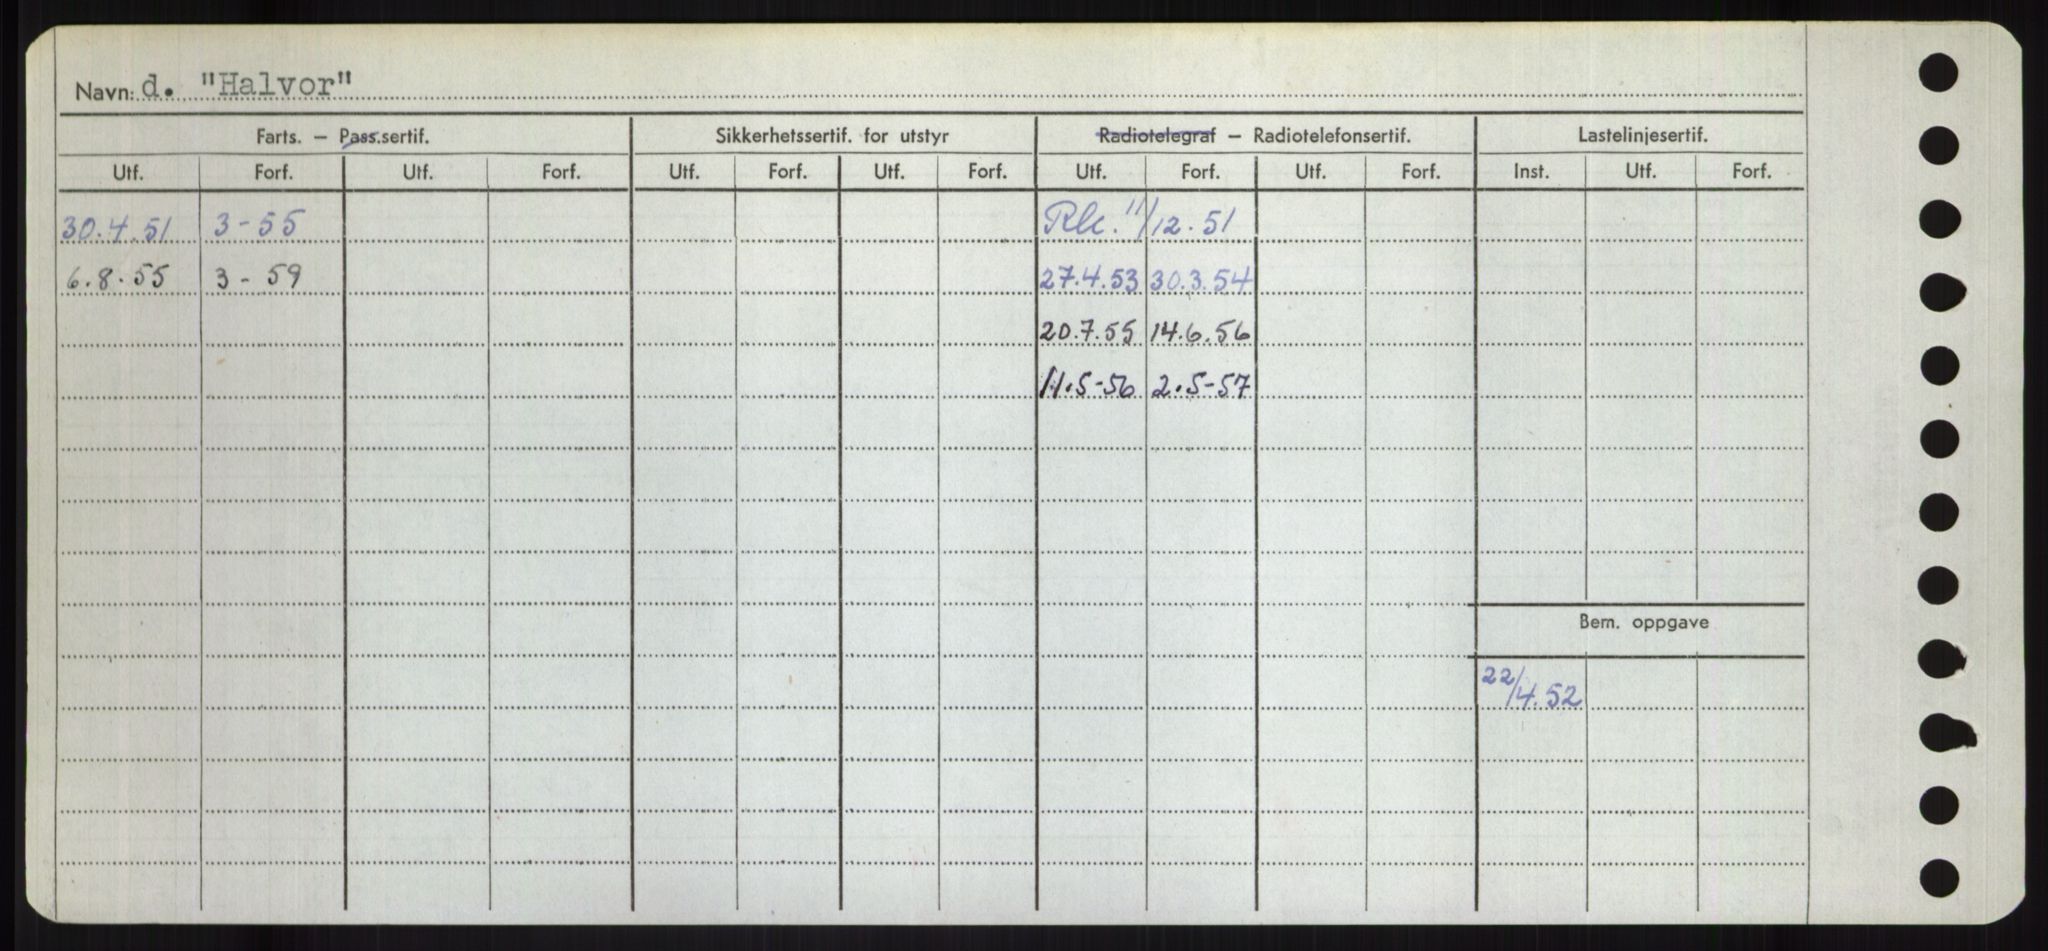 Navn: d. "Halvor"
Farts. — Pass.sertif. Sikkerhetssertif. for utstyr Radiotelegraf — Radiotelefonsertif. Lastelinjesertif.
Utf. Forf. Utf. Forf. Utf. Forf. Utf. Forf. Utf. Forf. Utf. Forf. Inst. Utf. Forf.
30.4.51 3-55 11/12.51
6.8.55 3-59 27.4.53 30.3.54
20.7.55 14.6.56
11.5-56 2.5-57
Bem. oppgave
22/4.52